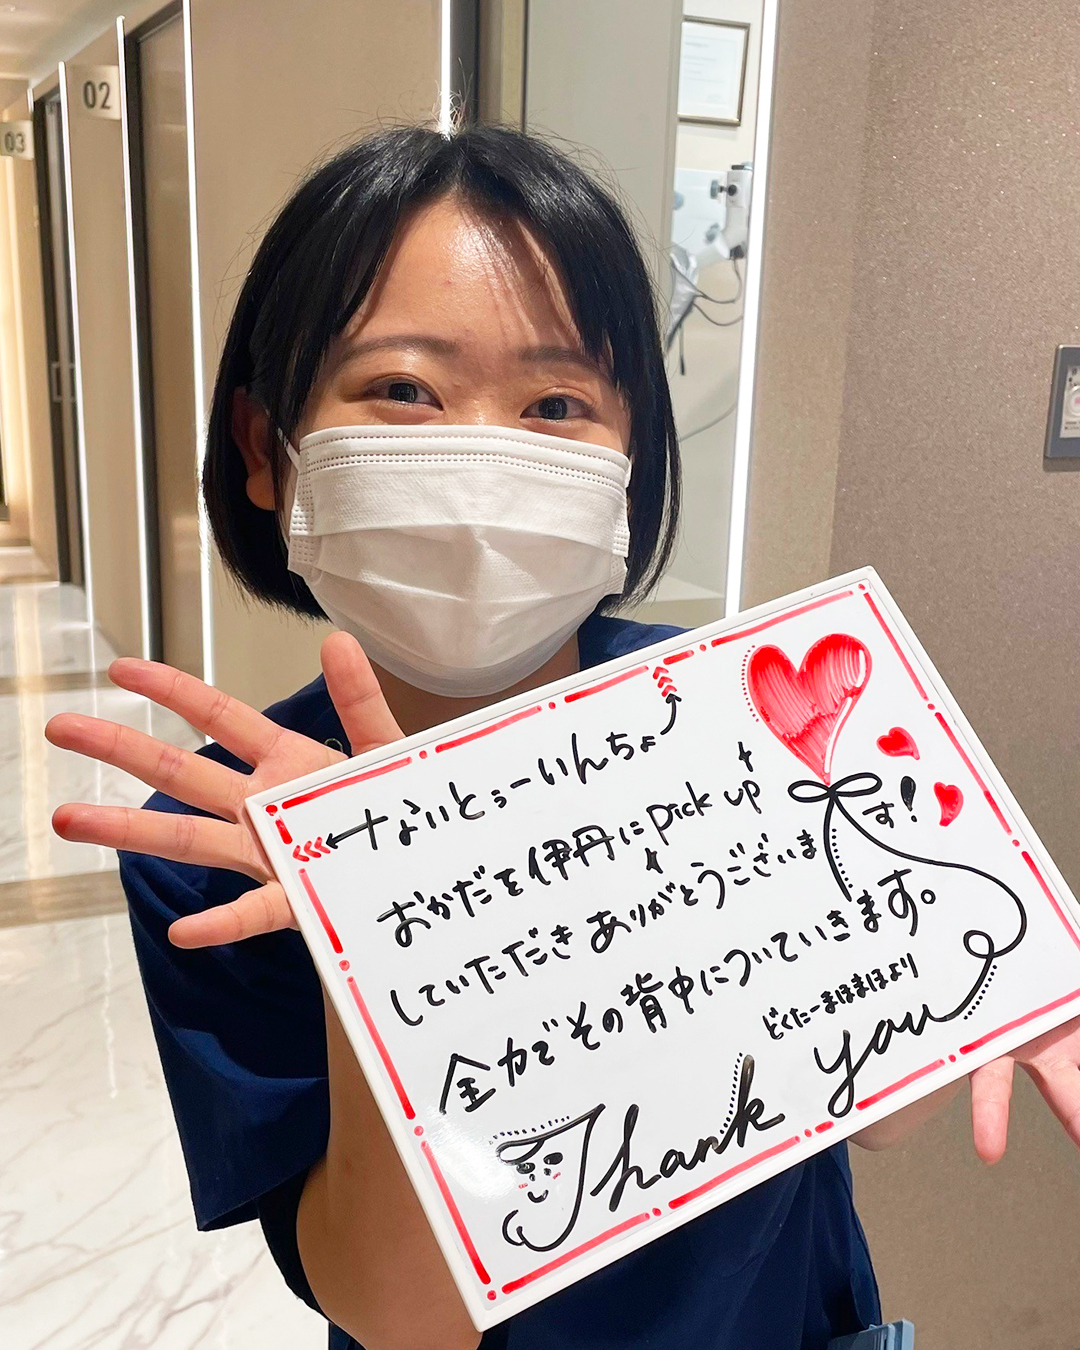 02
03
ないとぅーいんちょ
おかだを伊丹にpick up
していただきありがとうございます!
全力でその背中についていきます。
どくたーまほまほより
Thank you